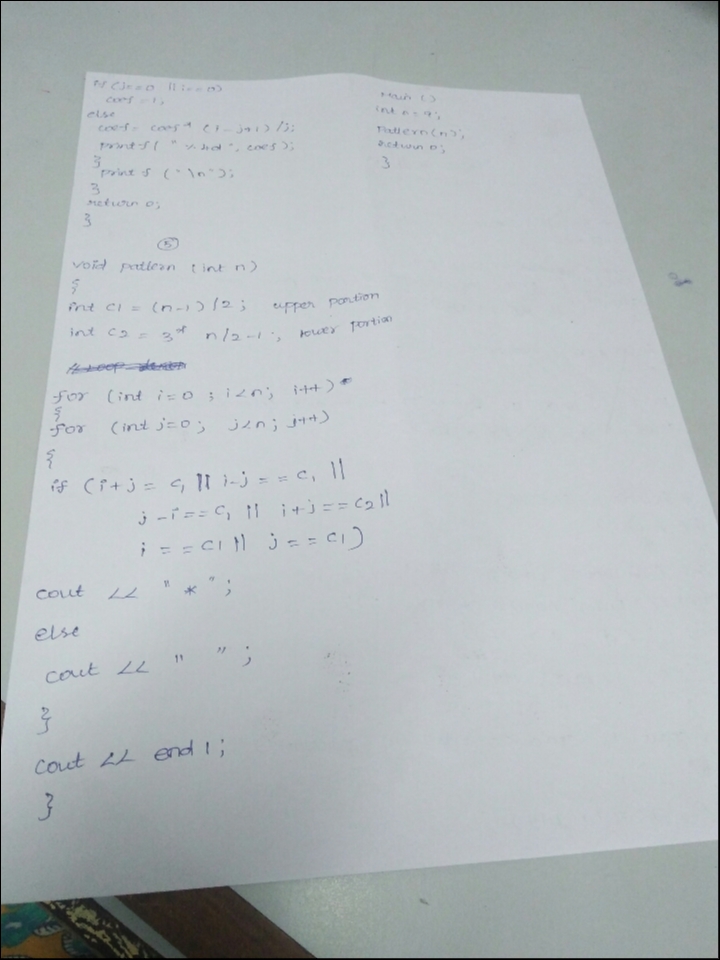 if (j==0 || i==0)
coef = 1;
else
coef = coef * (i-j+1)/j;
printf(" %4d", coef);
}
printf ("\n");
}
return 0;
}
main ()
int n = 9;
Pattern(n);
return 0;
}
5
void pattern (int n)
{
int c1 = (n-1) /2; upper portion
int c2 = 3* n/2-1; lower portion
for (int i=0 ; i<n; i++)
{
for (int j=0; j<n; j++)
{
if (i+j = c1 || i-j == c1 ||
j-i == c1 || i+j == c2 ||
i == c1 || j == c1)
cout << "*";
else
cout << " ";
}
cout << endl;
}